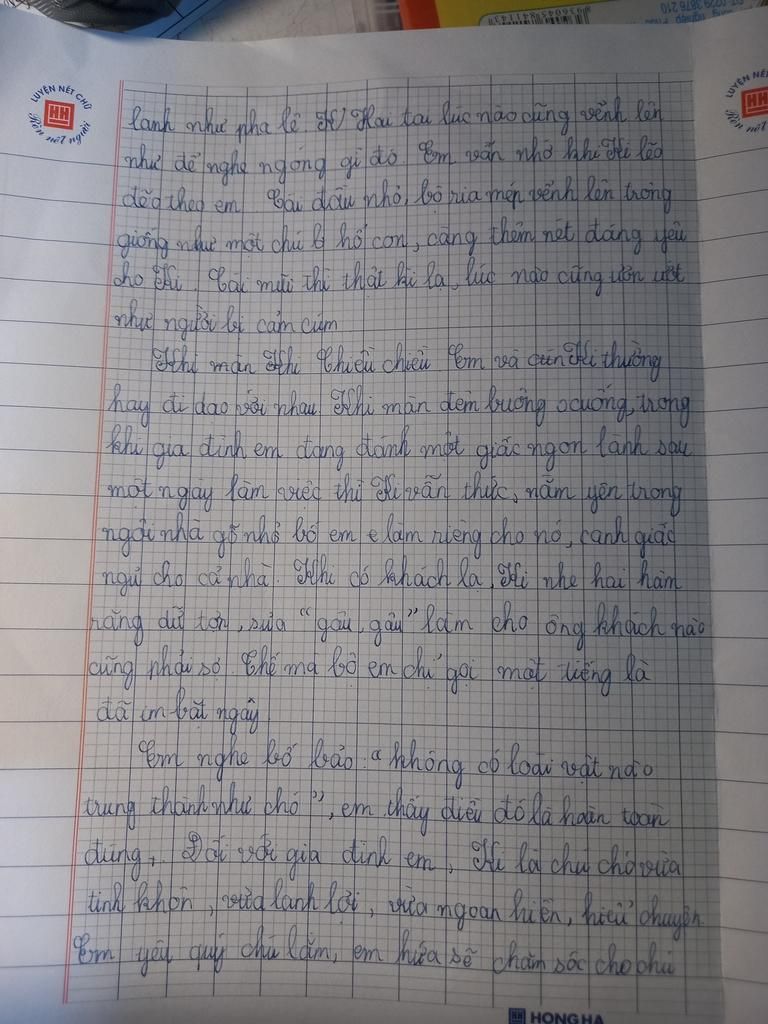 LUYỆN NÉT CHỮ
HH
Rèn nết người
lanh như pha lê. Hai tai lúc nào cũng vểnh lên
như để nghe ngóng gì đó. Em vẫn nhớ khi Ki lẽo
đẽo theo em. Cái đầu nhỏ, bộ ria mép vểnh lên trông
giống như một chú hổ con, càng thêm nét đáng yêu
cho Ki. Cái mũi thì thật kì lạ, lúc nào cũng ươn ướt
như người bị cảm cúm
Khi màn Khi Chiều chiều Em và cún Ki thường
hay đi dạo với nhau. Khi màn đêm buông xuống, trong
khi gia đình em đang đánh một giấc ngon lành sau
một ngày làm việc thì Ki vẫn thức, nằm yên trong
ngôi nhà gỗ nhỏ bố em làm riêng cho nó, canh giấc
ngủ cho cả nhà. Khi có khách lạ, Ki nhe hai hàm
răng dữ tợn, sủa "gâu, gâu" làm cho ông khách nào
cũng phải sợ. Thế mà bố em chỉ gọi một tiếng là
đã im bặt ngay
Em nghe bố bảo: "không có loài vật nào
trung thành như chó", em thấy điều đó là hoàn toàn
đúng. Đối với gia đình em, Ki là chú chó vừa
tinh khôn, vừa lanh lợi, vừa ngoan hiền, hiểu chuyện
Em yêu quý chú lắm, em hứa sẽ chăm sóc cho chú
HH HONG HA